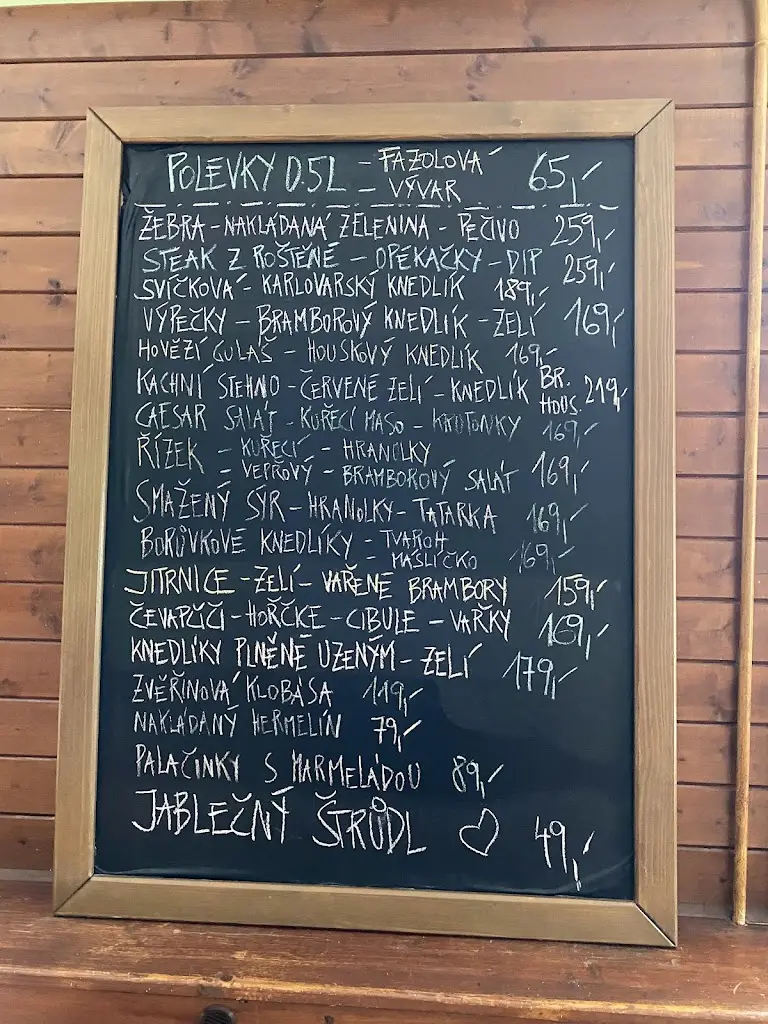 POLEVKY 0.5L - FAZOLOVÁ 65,-
- VÝVAR
ŽEBRA - NAKLÁDANÁ ZELENINA - PEČIVO 259,-
STEAK Z ROŠTĚNÉ - OPÉKAČKY - DIP 259,-
SVÍČKOVÁ - KARLOVARSKÝ KNEDLÍK 189,-
VÝPEČKY - BRAMBOROVÝ KNEDLÍK - ZELÍ 169,-
HOVĚZÍ GULÁŠ - HOUSKOVÝ KNEDLÍK 169,-
KACHNÍ STEHNO - ČERVENÉ ZELÍ - KNEDLÍK BR. HOUS. 219,-
CAESAR SALÁT - KUŘECÍ MASO - KRUTONKY 169,-
ŘÍZEK - KUŘECÍ - HRANOLKY
- VEPŘOVÝ - BRAMBOROVÝ SALÁT 169,-
SMAŽENÝ SÝR - HRANOLKY - TATARKA 169,-
BORŮVKOVÉ KNEDLÍKY - TVAROH
- MÁSLÍČKO 169,-
JITRNICE - ZELÍ - VAŘENÉ BRAMBORY 159,-
ČEVAPČIČI - HOŘČICE - CIBULE - VAŘKY 169,-
KNEDLÍKY PLNĚNÉ UZENÝM - ZELÍ 179,-
ZVĚŘINOVÁ KLOBÁSA 119,-
NAKLÁDANÝ HERMELÍN 79,-
PALAČINKY S MARMELÁDOU 89,-
JABLEČNÝ ŠTRŮDL ♡ 49,-